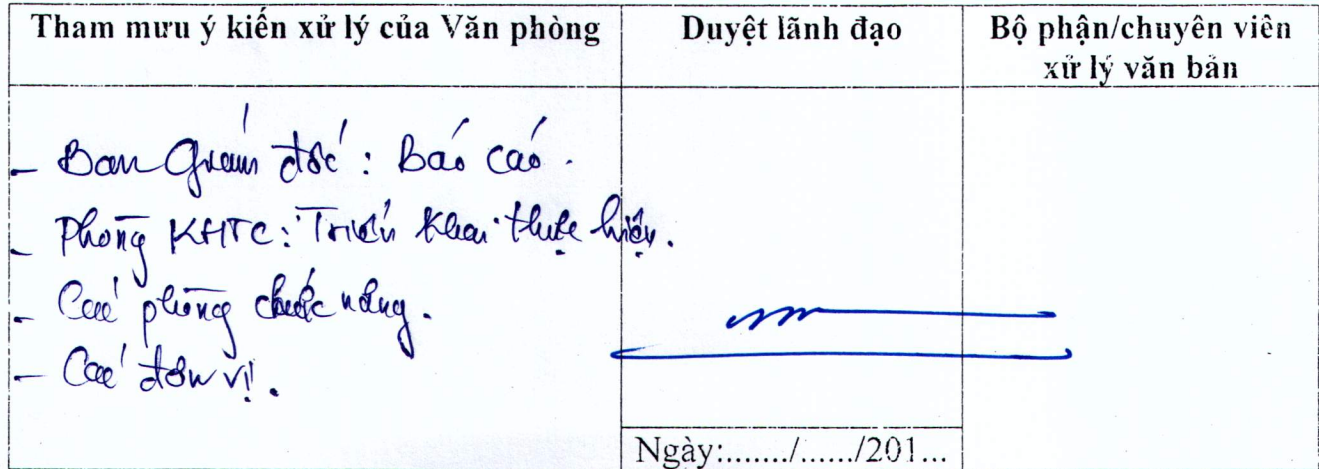 Tham mưu ý kiến xử lý của Văn phòng
Duyệt lãnh đạo
Bộ phận/chuyên viên
xử lý văn bản
- Ban Giám đốc: Báo cáo.
- Phòng KHTC: Triển khai thực hiện.
- Các phòng chức năng.
- Các đơn vị.
Ngày:......./....../201...